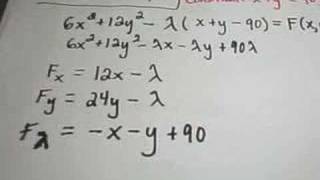 6x² + 12y² - λ(x + y - 90) = F(x,
6x² + 12y² - λx - λy + 90λ
Fx = 12x - λ
Fy = 24y - λ
Fλ = -x - y + 90